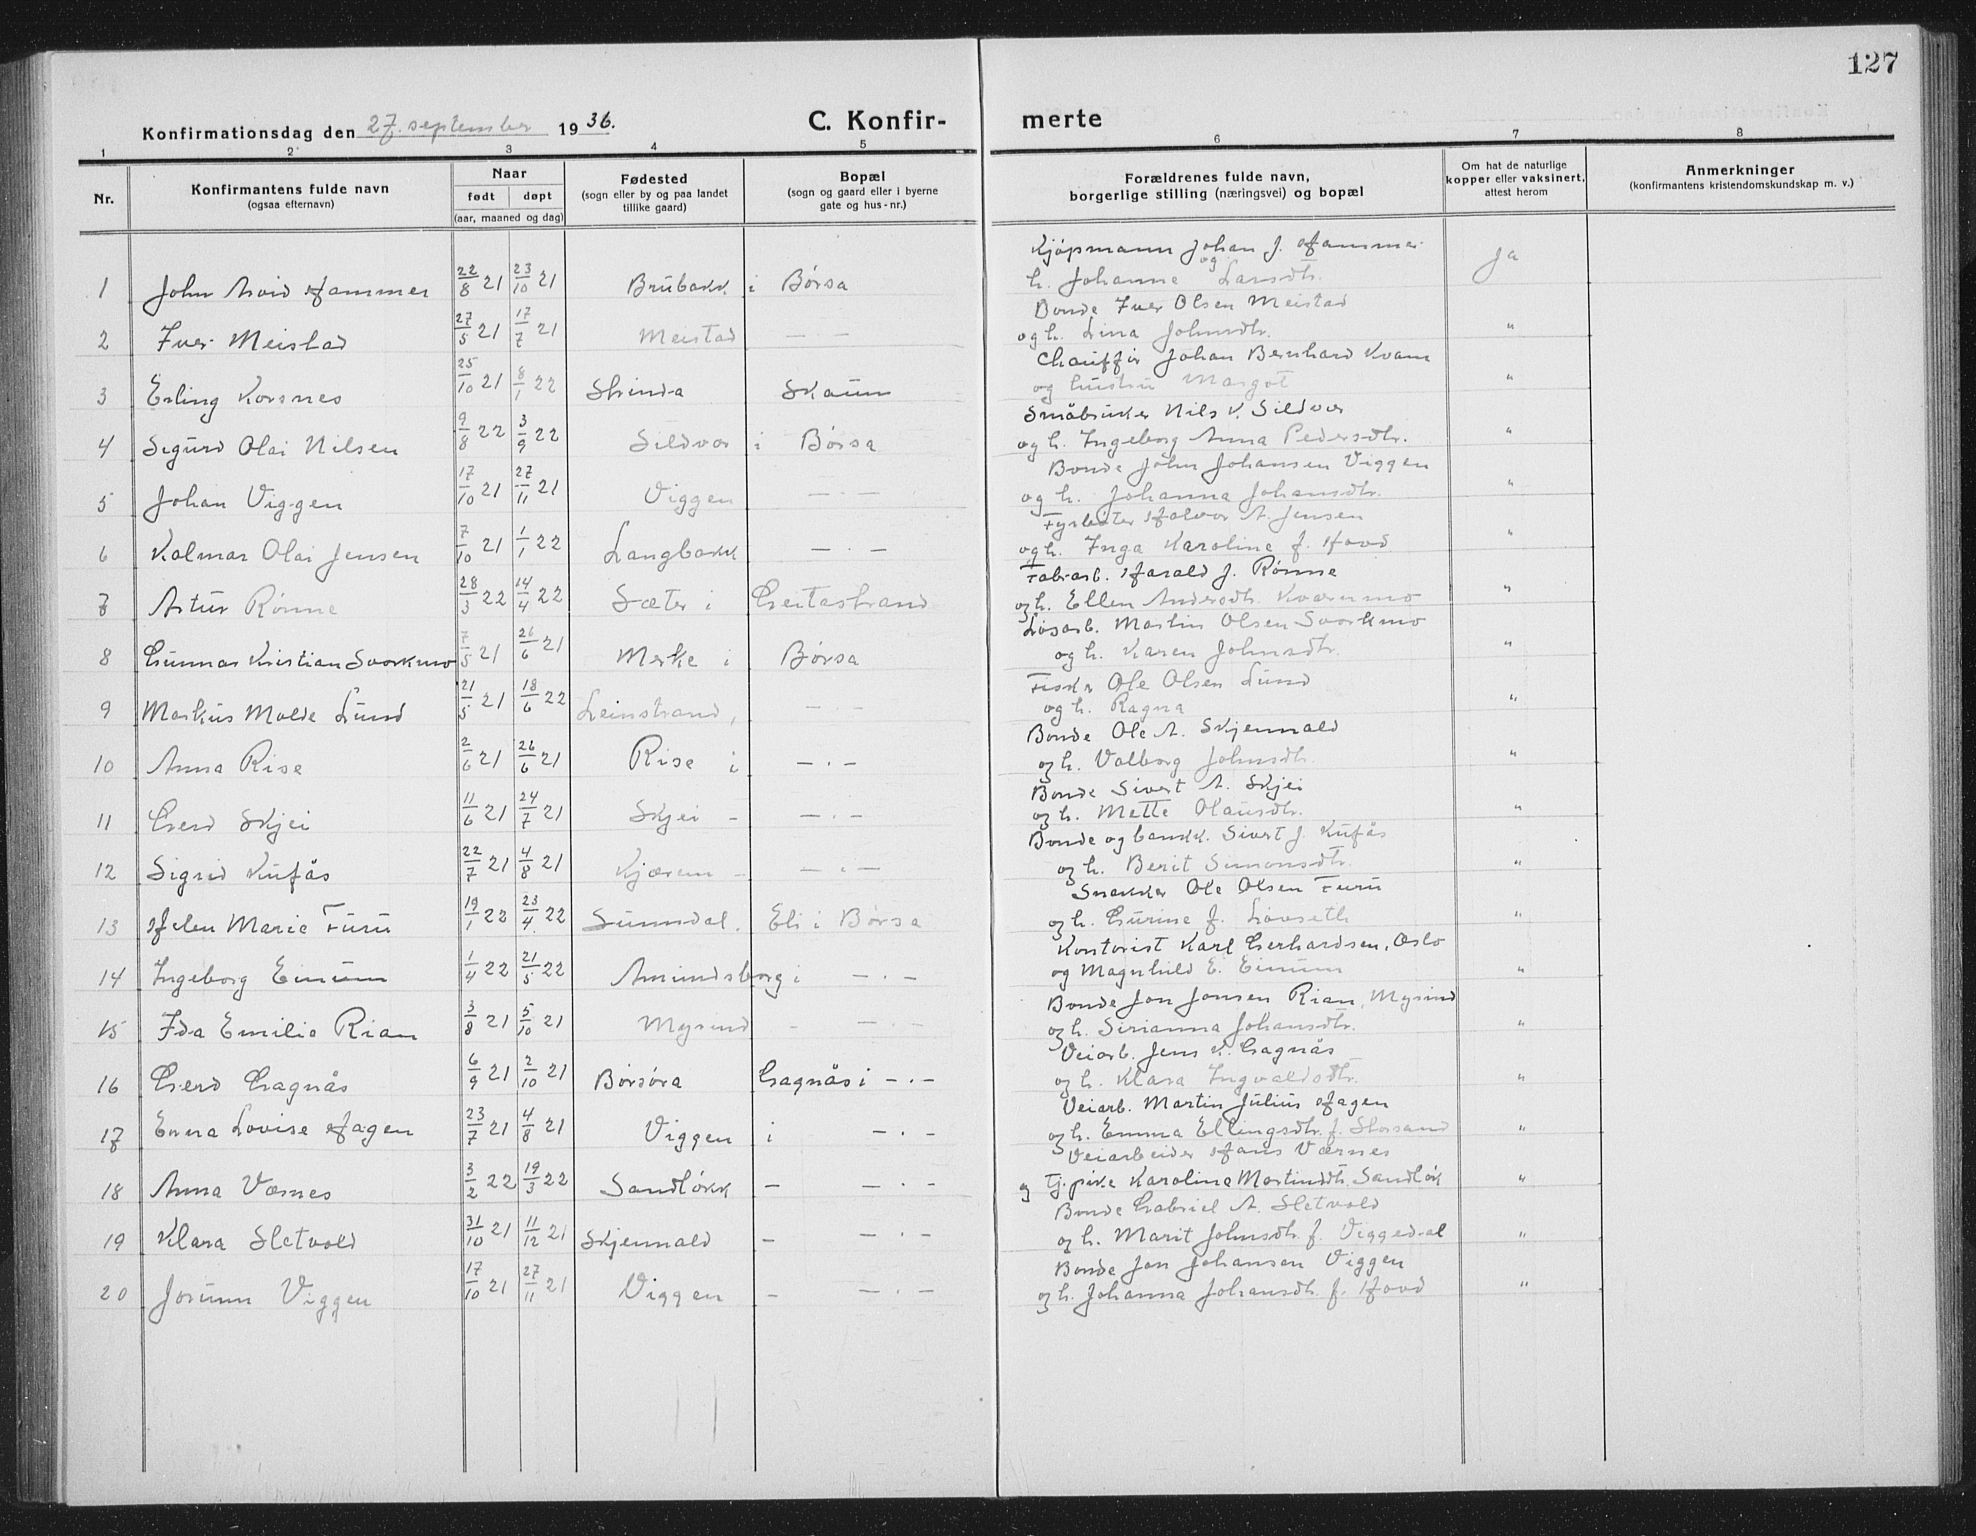 127
Konfirmationsdag den 27. september 1936.
C. Konfir-
merte
1 2 3 4 5 6 7 8
Nr.
Konfirmantens fulde navn
(ogsaa efternavn)
Naar
født døpt
(aar, maaned og dag)
Fødested
(sogn eller by og paa landet
tillike gaard)
Bopæl
(sogn og gaard eller i byerne
gate og hus-nr.)
Forældrenes fulde navn,
borgerlige stilling (næringsvei) og bopæl
Om hat de naturlige
kopper eller vaksinert,
attest herom
Anmerkninger
(konfirmantens kristendomskundskap m. v.)
Kjøpmann Johan J. Hammer
og
1 John Arvid Hammer 22/8 21 23/10 21 Brubakk i Børsa h. Johanne Larsdtr. Ja
Bonde Iver Olsen Meistad
2 Iver Meistad 27/5 21 17/7 21 Meistad — — og h. Lina Johnsdtr. "
Chauffør Johan Bernhard Kvam
3 Erling Korsnes 25/10 21 8/1 22 Strinda Skaun og hustru Margot "
Småbruker Nils K. Sildvor
4 Sigurd Olai Nilsen 9/8 22 3/9 22 Sildvor i Børsa og h. Ingeborg Anna Pedersdtr. "
Bonde John Johansen Viggen
5 Johan Viggen 17/10 21 27/11 21 Viggen — . — og h. Johanna Johansdtr. "
Fyrbøter Halvor A. Jensen
6 Kolmar Olai Jensen 7/10 21 1/1 22 Langbakk — . — og h. Inga Karoline f. Hovd "
Fabrarb. Harald J. Rønne
7 Artur Rønne 28/3 22 14/4 22 Sæter i Geitastrand og h. Ellen Andersdtr. Kværnmo "
Løsarb. Martin Olsen Svorkmo
8 Gunnar Kristian Svorkmo 7/5 21 26/6 21 Merke i Børsa og h. Karen Johnsdtr. "
Fisker Ole Olsen Lund
9 Markus Molde Lund 21/5 21 18/6 22 Leinstrand, — . — og h. Ragna "
Bonde Ole A. Skjennald
10 Anna Rise 2/6 21 26/6 21 Rise i — . — og h. Valborg Johnsdtr. "
Bonde Sivert A. Skjei
11 Gerd Skjei 11/6 21 24/7 21 Skjei - — . — og h. Mette Olausdtr. "
Bonde og bankk. Sivert J. Kufås
12 Sigrid Kufås 22/7 21 4/8 21 Kjærem - — . — og h. Berit Simonsdtr. "
Snekker Ole Olsen Furu
13 Helen Marie Furu 19/1 22 23/4 22 Sunndal. Eli i Børsa og h. Gurine f. Løvseth "
Kontorist Karl Gerhardsen, Oslo
14 Ingeborg Einum 1/4 22 21/5 22 Amundsborg i — . — og Magnhild E. Einum "
Bonde Jon Jonsen Rian, Myrind
15 Ida Emilie Rian 3/8 21 5/10 21 Myrind - — . — og h. Sirianna Johansdtr. "
Veiarb. Jens K. Gagnås
16 Gerd Gagnås 6/9 21 2/10 21 Børsøra Gagnås i — . — og h. Klara Ingvaldsdtr. "
Veiarb. Martin Julius Hagen
17 Emma Lovise Hagen 23/7 21 4/8 21 Viggen i — . — og h. Emma Ellingsdtr. f. Storsand "
Veiarbeider Hans Værnes
18 Anna Værnes 3/2 22 19/3 22 Sandløkk — — . — og tj.pike Karoline Martinsdtr. Sandløk "
Bonde Gabriel A. Sletvold
19 Klara Sletvold 31/10 21 11/12 21 Skjennald — — . — og h. Marit Johnsdtr. f. Viggedal "
Bonde Jon Johansen Viggen
20 Jorunn Viggen 17/10 21 27/11 21 Viggen — — . — og h. Johanna Johansdtr. f. Hovd "